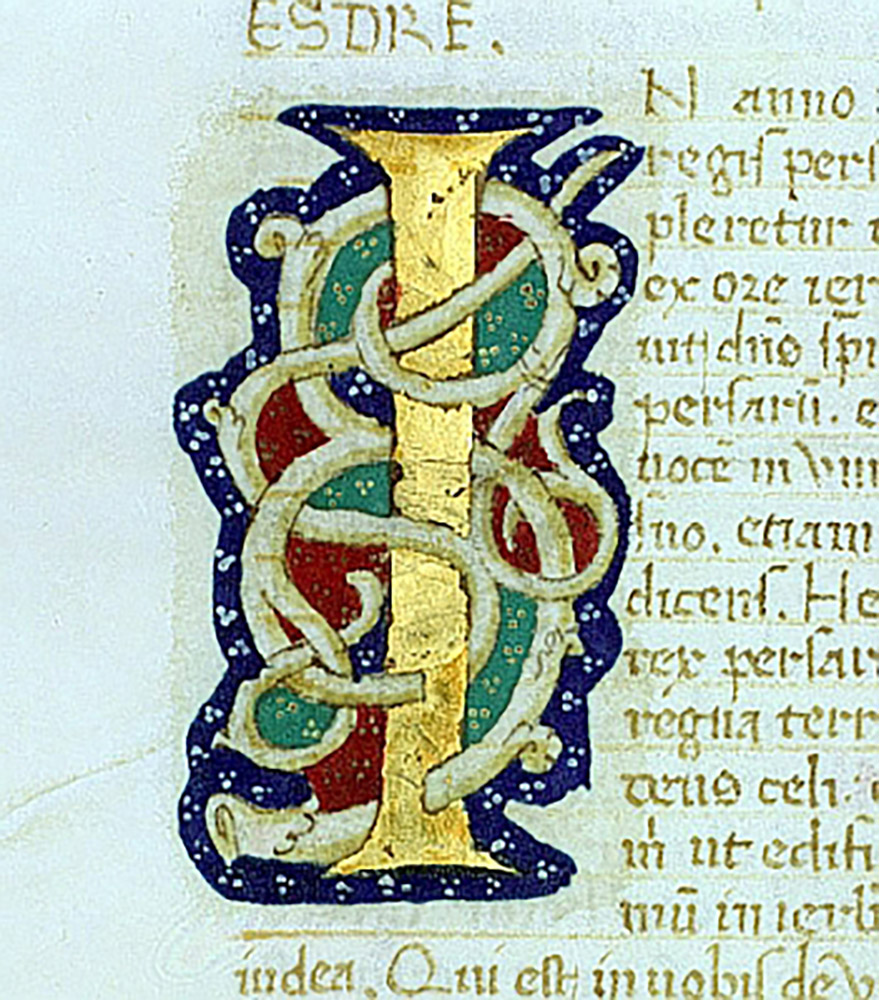 ESDRE.
IN anno
regis pers
pleretur
ex ore ier
uit dn̄s sp̄i
persarū. e
uoce in
suo. etiam
dicens. He
rex persar
regna terr
deus celi.
m̄ ut edifi
mū in ierl̄
iudea. Qui est in uobis de